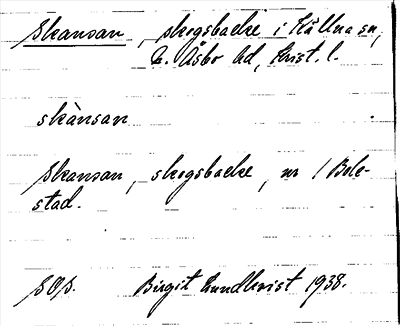 Skansan, skogsbacke i Källna sn,
N. Åsbo hd, Krist. l.
skànsan
Skansan, skogsbacke, nr 1 Bole-
stad.
SOS. Birgit Lundkvist 1938.